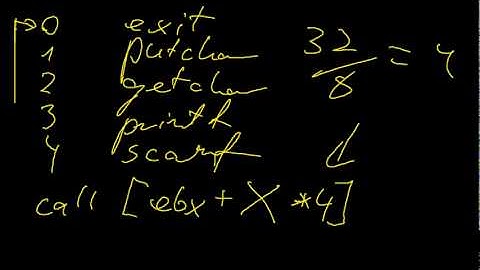 0 exit
1 putchar
2 getchar
3 printf
4 scanf
32/8 = 4
call [ebx + X *4]